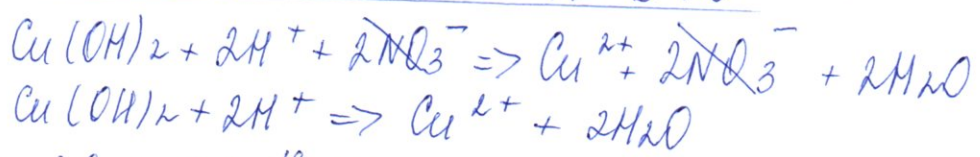 Cu(OH)2 + 2H⁺ + 2NO3⁻ => Cu²⁺ + 2NO3⁻ + 2H2O
Cu(OH)2 + 2H⁺ => Cu²⁺ + 2H2O